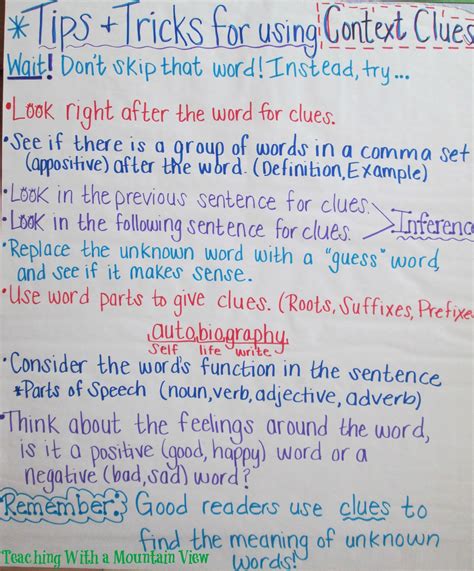 *Tips + Tricks for using Context Clues
Wait! Don't skip that word! Instead, try...
•Look right after the word for clues.
•See if there is a group of words in a comma set
(appositive) after the word. (Definition, Example)
•Look in the previous sentence for clues.
•Look in the following sentence for clues.
Inferenc
•Replace the unknown word with a "guess" word,
and see if it makes sense.
•Use word parts to give clues. (Roots, Suffixes, Prefixe
autobiography
self life write
•Consider the word's function in the sentence
*Parts of Speech (noun, verb, adjective, adverb)
•Think about the feelings around the word,
is it a positive (good, happy) word or a
negative (bad, sad) word?
Remember: Good readers use clues to
find the meaning of unknown
words!
Teaching With a Mountain View